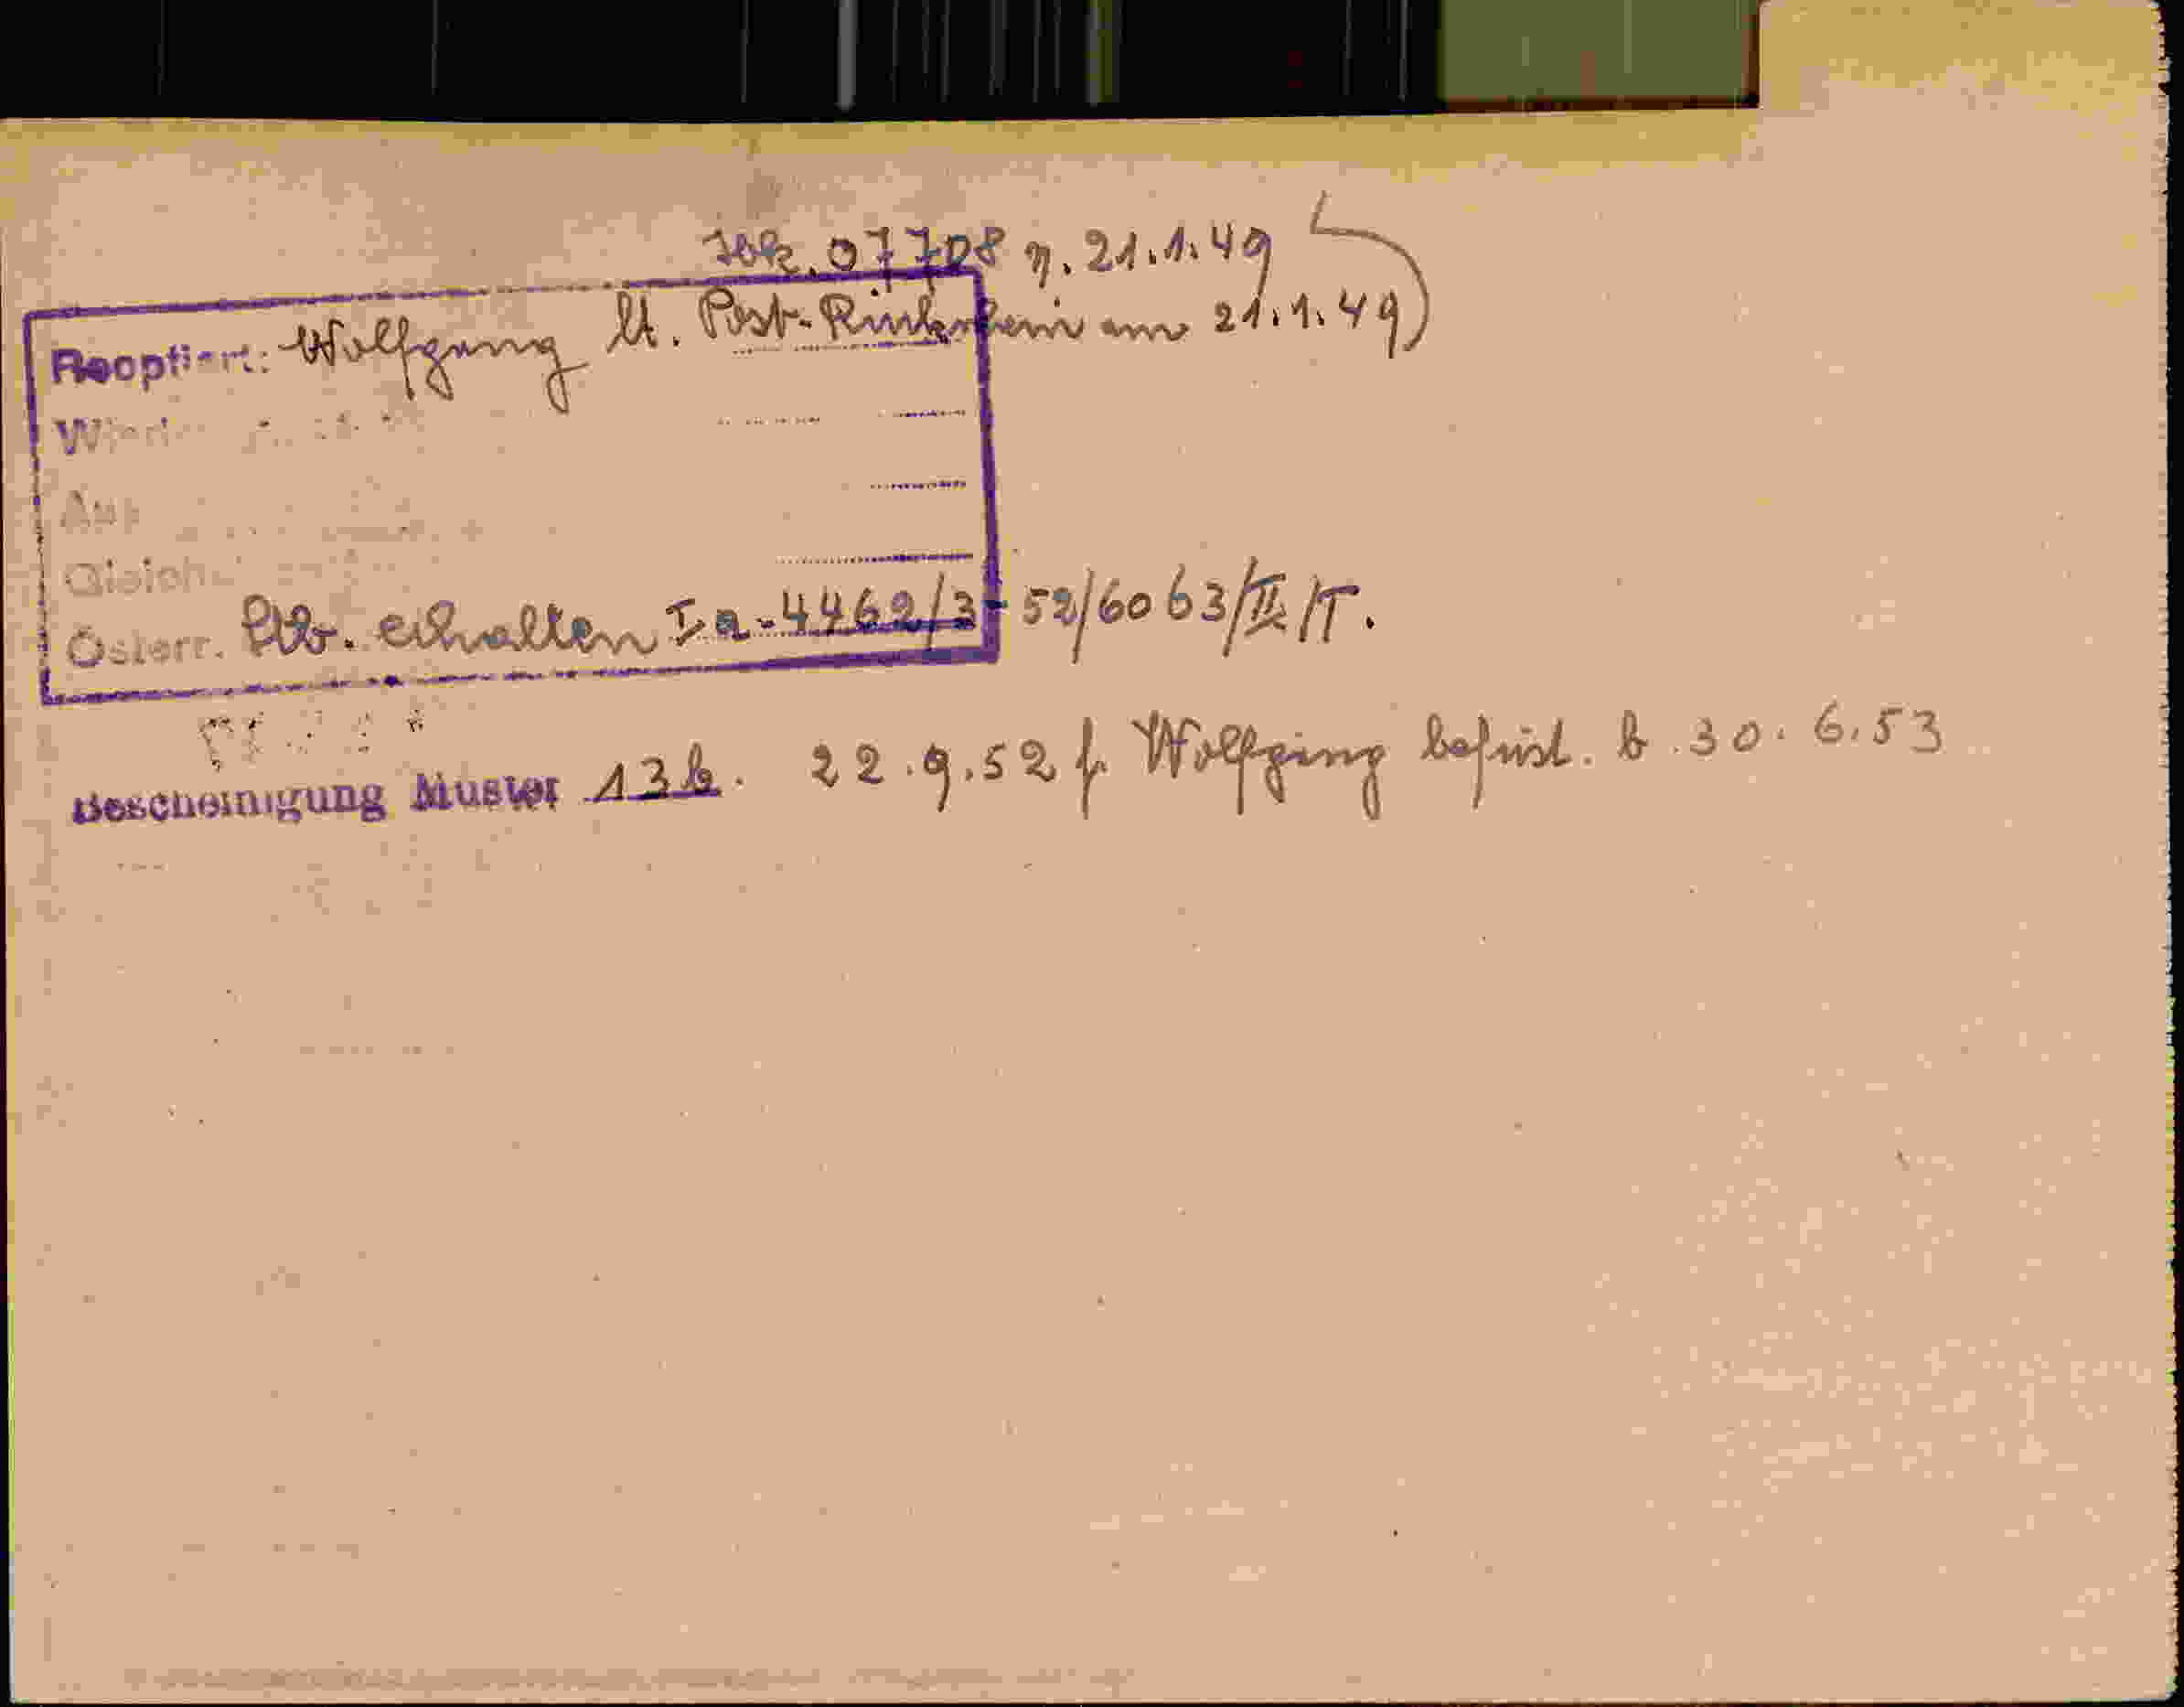 Ibk. 07708 v. 21.1.49
Reoptiert: Wolfgang lt. Post-Rückschein am 21.1.49
Gleich
Österr. Stb. erhalten Ia-4462/3-52/6063/II/T.
Bescheinigung Muster 13b. 22.9.52 f. Wolfgang befrist. b. 30.6.53